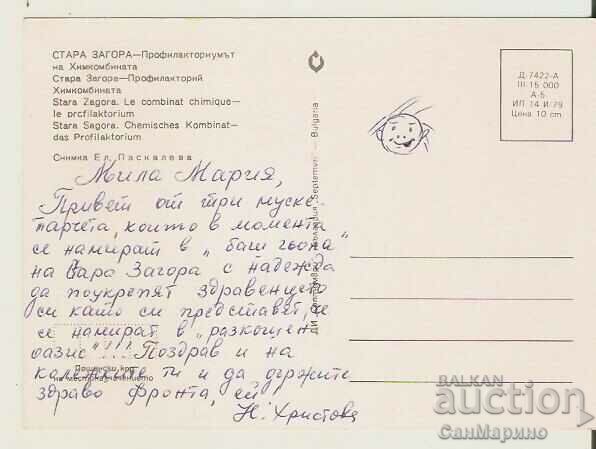 СТАРА ЗАГОРА—Профилакториумът
на Химкомбината
Стара Загора—Профилакторий
Химкомбината
Stara Zagora. Le combinat chimique—
le prcfilaktorium
Stara Sagora. Chemisches Kombinat—
das Profilaktorium
Снимка Ел. Паскалева
Мила Мария,
Привет от три муске-
тарчета, които в момента
се намират в „баги гьона"
на Стара Загора с надежда
да поукрепят здравенцето
си като си представят, че
се намират в „разкошен
оазис"!!! Поздрав и на
колежките ти и да държите
здраво фронта, ей
Н. Христова
Пощенски код
на местоназначението
ДИ „Септември" България „Septemvri" — Bulgaria
Д-7422-А
III 15 000
А-6
ИП 14 И 79
Цена 10 cm.
BALKAN
auction
СанМарино